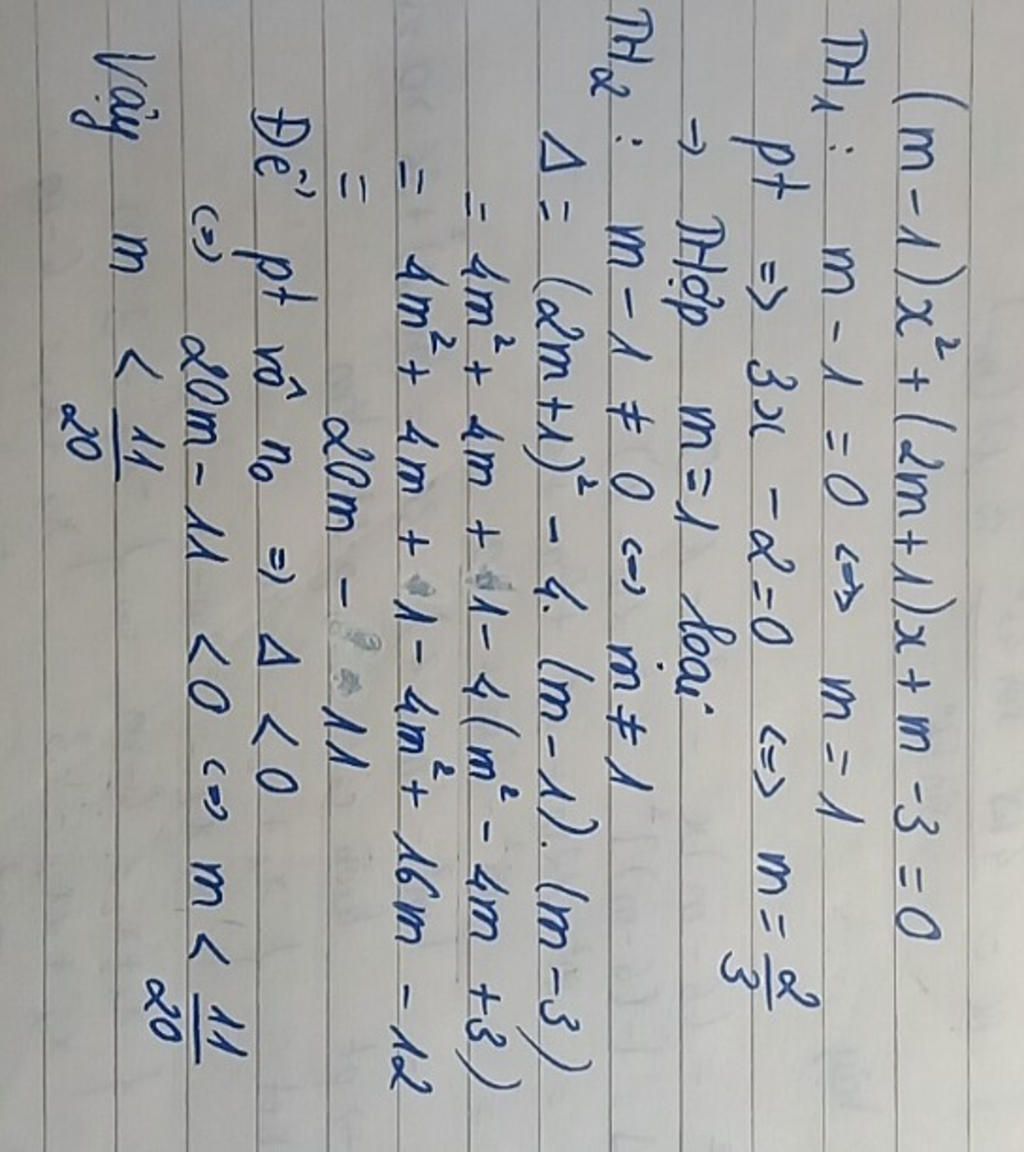 (m - 1)x² + (2m + 1)x + m - 3 = 0
TH₁ : m - 1 = 0 <=> m = 1
pt => 3x - 2 = 0 <=> m = 2/3
→ THợp m = 1 loại
TH₂ : m - 1 ≠ 0 <=> m ≠ 1
Δ = (2m+1)² - 4. (m - 1). (m - 3)
= 4m² + 4m + 1 - 4(m² - 4m + 3)
= 4m² + 4m + 1 - 4m² + 16m - 12
= 20m - 11
Để pt vô n₀ => Δ < 0
<=> 20m - 11 < 0 <=> m < 11/20
Vậy m < 11/20